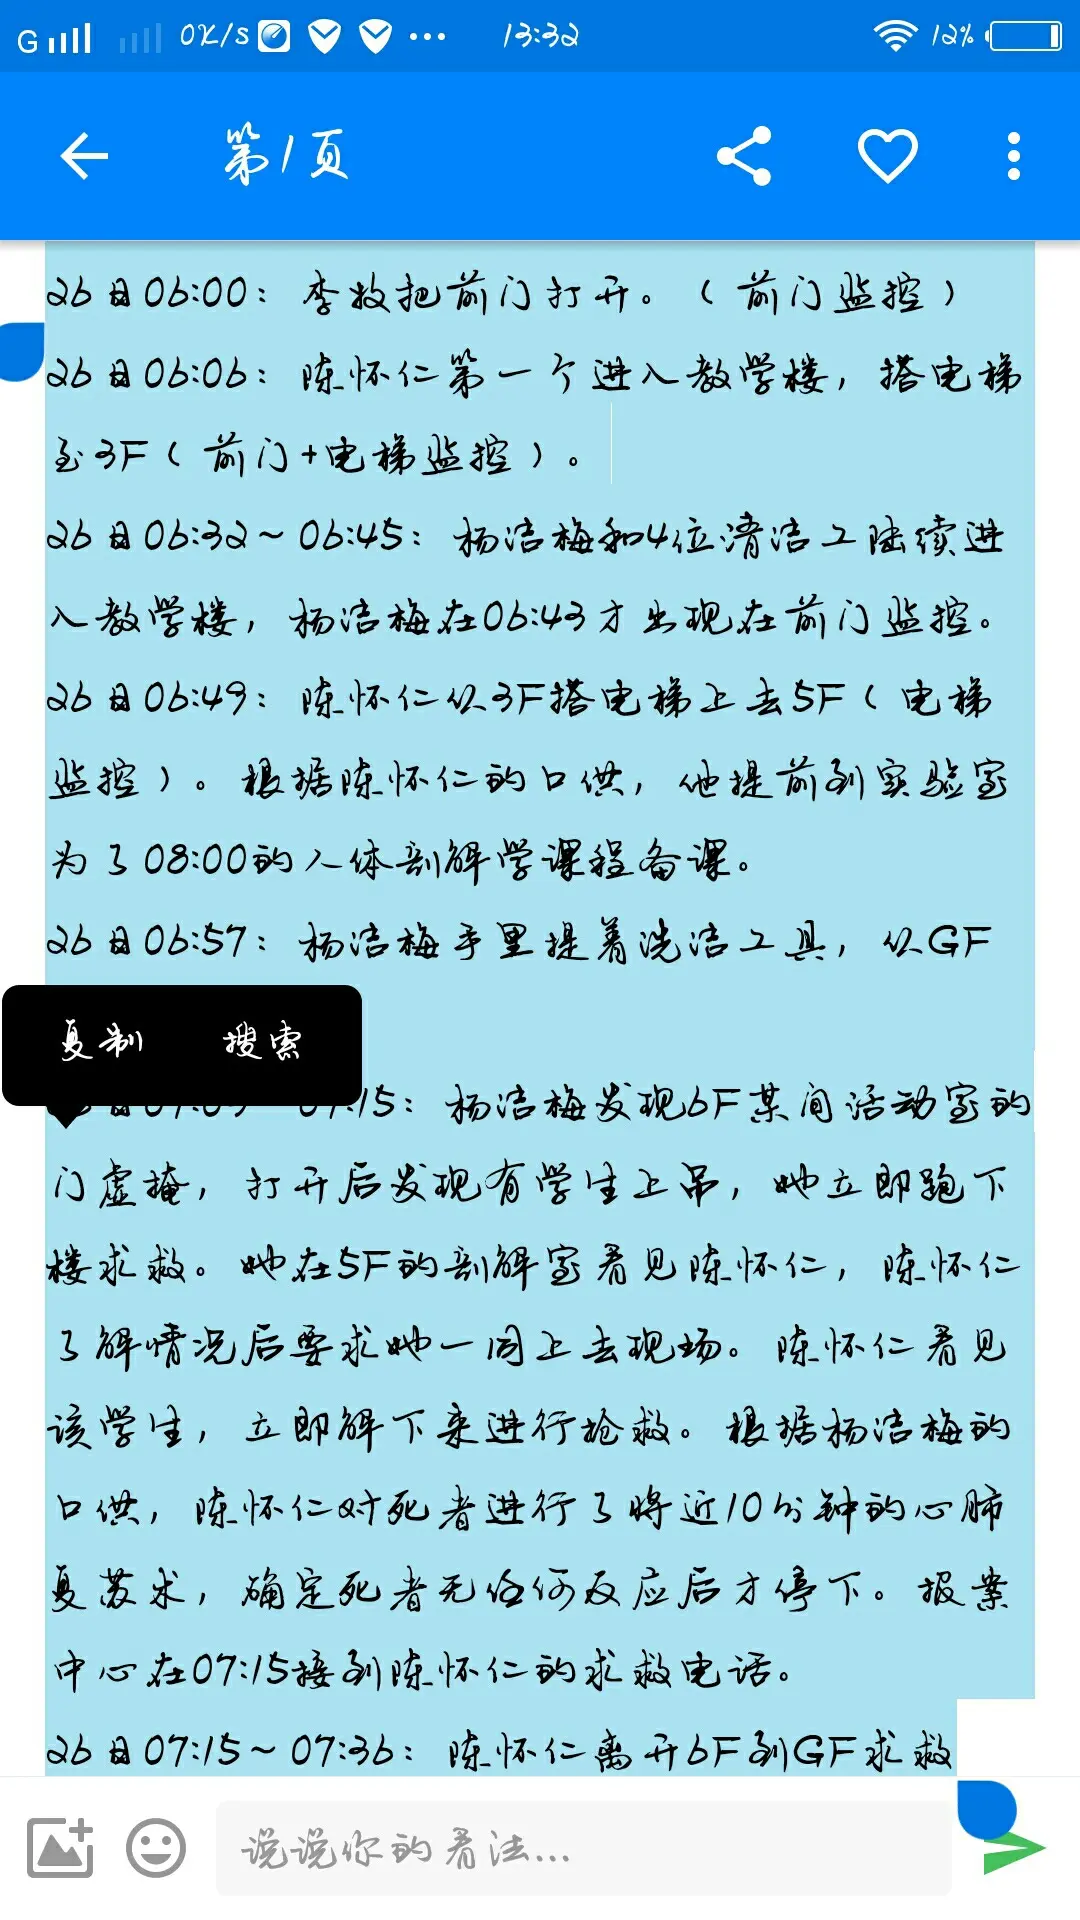 G 0K/s ... 13:32 12%
第1页
26日06:00：李牧把前门打开。（前门监控）
26日06:06：陈怀仁第一个进入教学楼，搭电梯
至3F（前门+电梯监控）。
26日06:32~06:45：杨洁梅和4位清洁工陆续进
入教学楼，杨洁梅在06:43才出现在前门监控。
26日06:49：陈怀仁从3F搭电梯上去5F（电梯
监控）。根据陈怀仁的口供，他提前到实验室
为了08:00的人体剖解学课程备课。
26日06:57：杨洁梅手里提着洗洁工具，从GF
复制 搜索
15：杨洁梅发现6F某间活动室的
门虚掩，打开后发现有学生上吊，她立即跑下
楼求救。她在5F的剖解室看见陈怀仁，陈怀仁
了解情况后要求她一同上去现场。陈怀仁看见
该学生，立即解下来进行抢救。根据杨洁梅的
口供，陈怀仁对死者进行了将近10分钟的心肺
复苏术，确定死者无任何反应后才停下。报案
中心在07:15接到陈怀仁的求救电话。
26日07:15~07:36：陈怀仁离开6F到GF求救
说说你的看法...